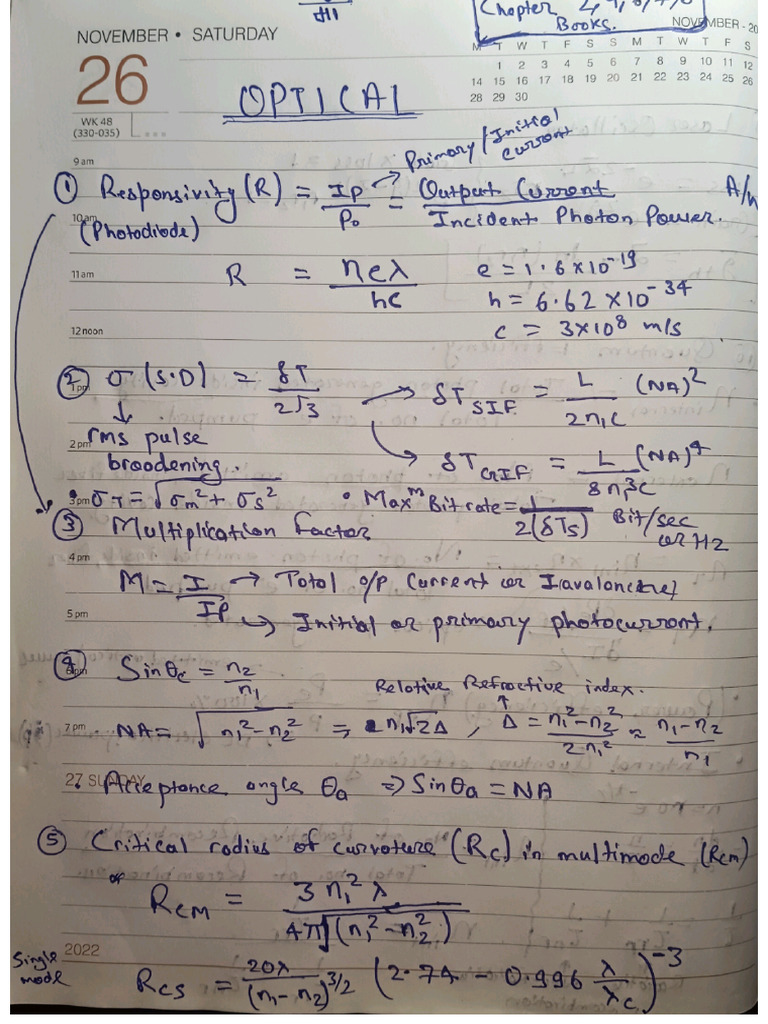 Chapter
Books.
NOVEMBER • SATURDAY
NOVEMBER - 20
M T W T F S S M T W T F S
1 2 3 4 5 6 7 8 9 10 11 12
14 15 16 17 18 19 20 21 22 23 24 25 26
28 29 30
26
WK 48
(330-035)
OPTICAL
9 am
Primary/Initial current
① Responsivity (R) = IP/Po = Output Current/Incident Photon Power. A/
10 am
(Photodiode)
11 am
R = ηeλ/hc
e = 1.6×10⁻¹⁹
h = 6.62×10⁻³⁴
c = 3×10⁸ m/s
12 noon
② σ (S.D) = δT/2√3 → δT SIF = L/2n₁c (NA)²
1 pm
↓
rms pulse
2 pm
broadening.
→ δT GIF = L/8n₁³c (NA)⁴
3 pm
• σT = √σm² + σs² • Maxᵐ Bit rate = 1/2(δTs) Bit/sec or Hz
③ Multiplication factor
4 pm
M = I/IP → Total o/p Current or I(avalanche)
5 pm
↳ Initial or primary photocurrent.
④ Sinθc = n₂/n₁
6 pm
Relative Refractive index.
7 pm
NA = √n₁²-n₂² ⇒ n₁√2Δ , Δ = n₁²-n₂²/2n₁² ≈ n₁-n₂/n₁
27 SUNDAY
• Acceptance angle θa ⇒ Sinθa = NA
⑤ Critical radius of curvature (Rc) in multimode (Rcm)
RcM = 3n₁²λ/4π√(n₁²-n₂²)
2022
Single mode
Rcs = 20λ/(n₁-n₂)^3/2 (2.74 - 0.996 λ/λc)⁻³